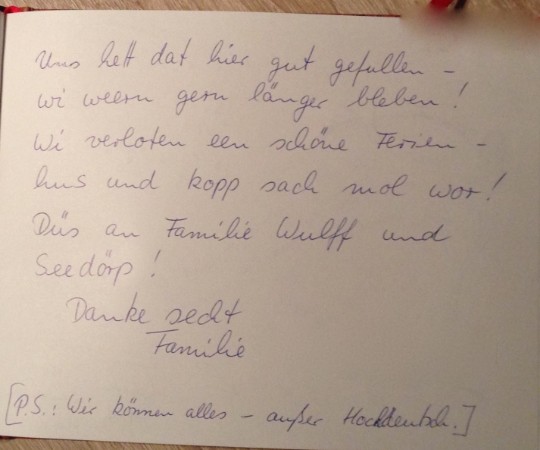 Uns hett dat hier gut gefullen –
wi weern gern länger bleben!
Wi verloten een schöne Ferien –
hus und kopp sach mol wor!
Düs an Familie Wulff und
Seedörp!
Danke secht
Familie
[P.S.: Wir können alles – außer Hochdeutsch.]